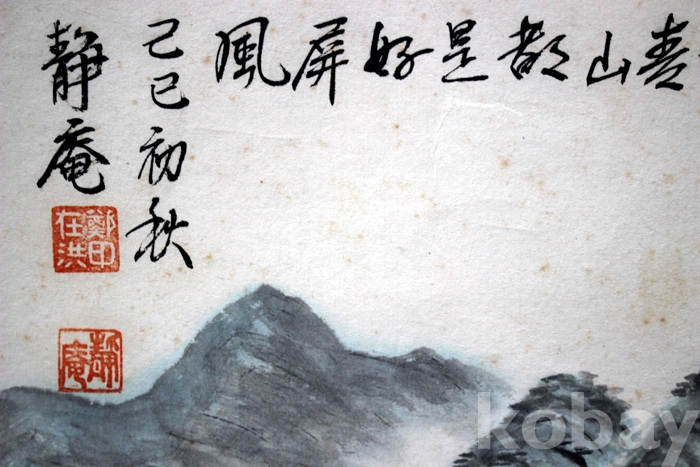 青山都是好屏風
己巳初秋
靜庵
鄭印在洪
靜庵
kobay